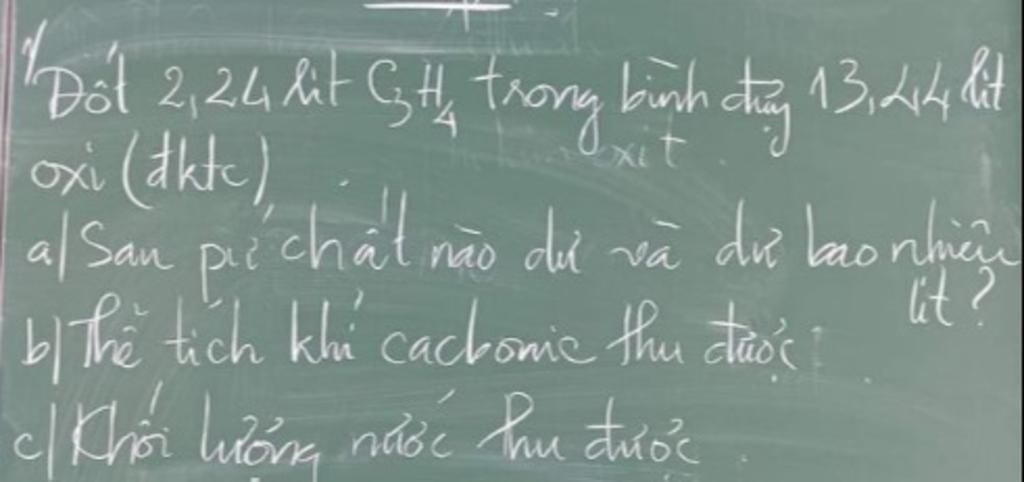 1/ Đốt 2,24 lít C3H4 trong bình đựng 13,44 lít
oxi (đktc)
a) Sau pứ chất nào dư và dư bao nhiêu
lít?
b) Thể tích khí cacbonic thu được
c) Khối lượng nước thu được.